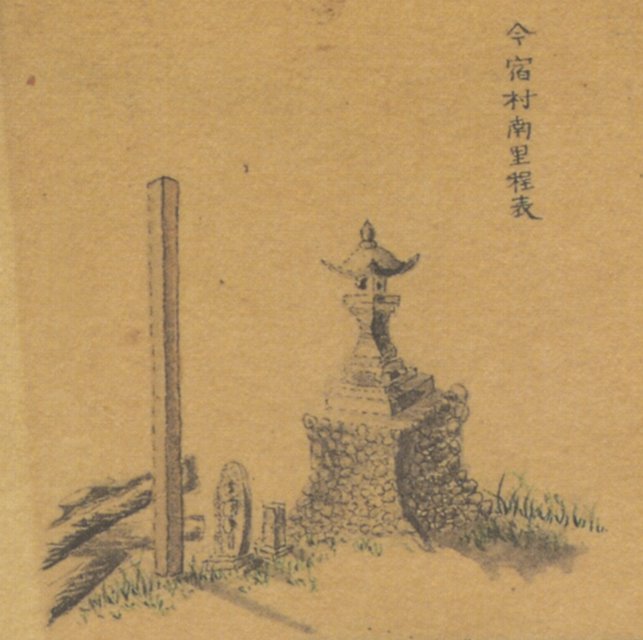 今宿村南里程表